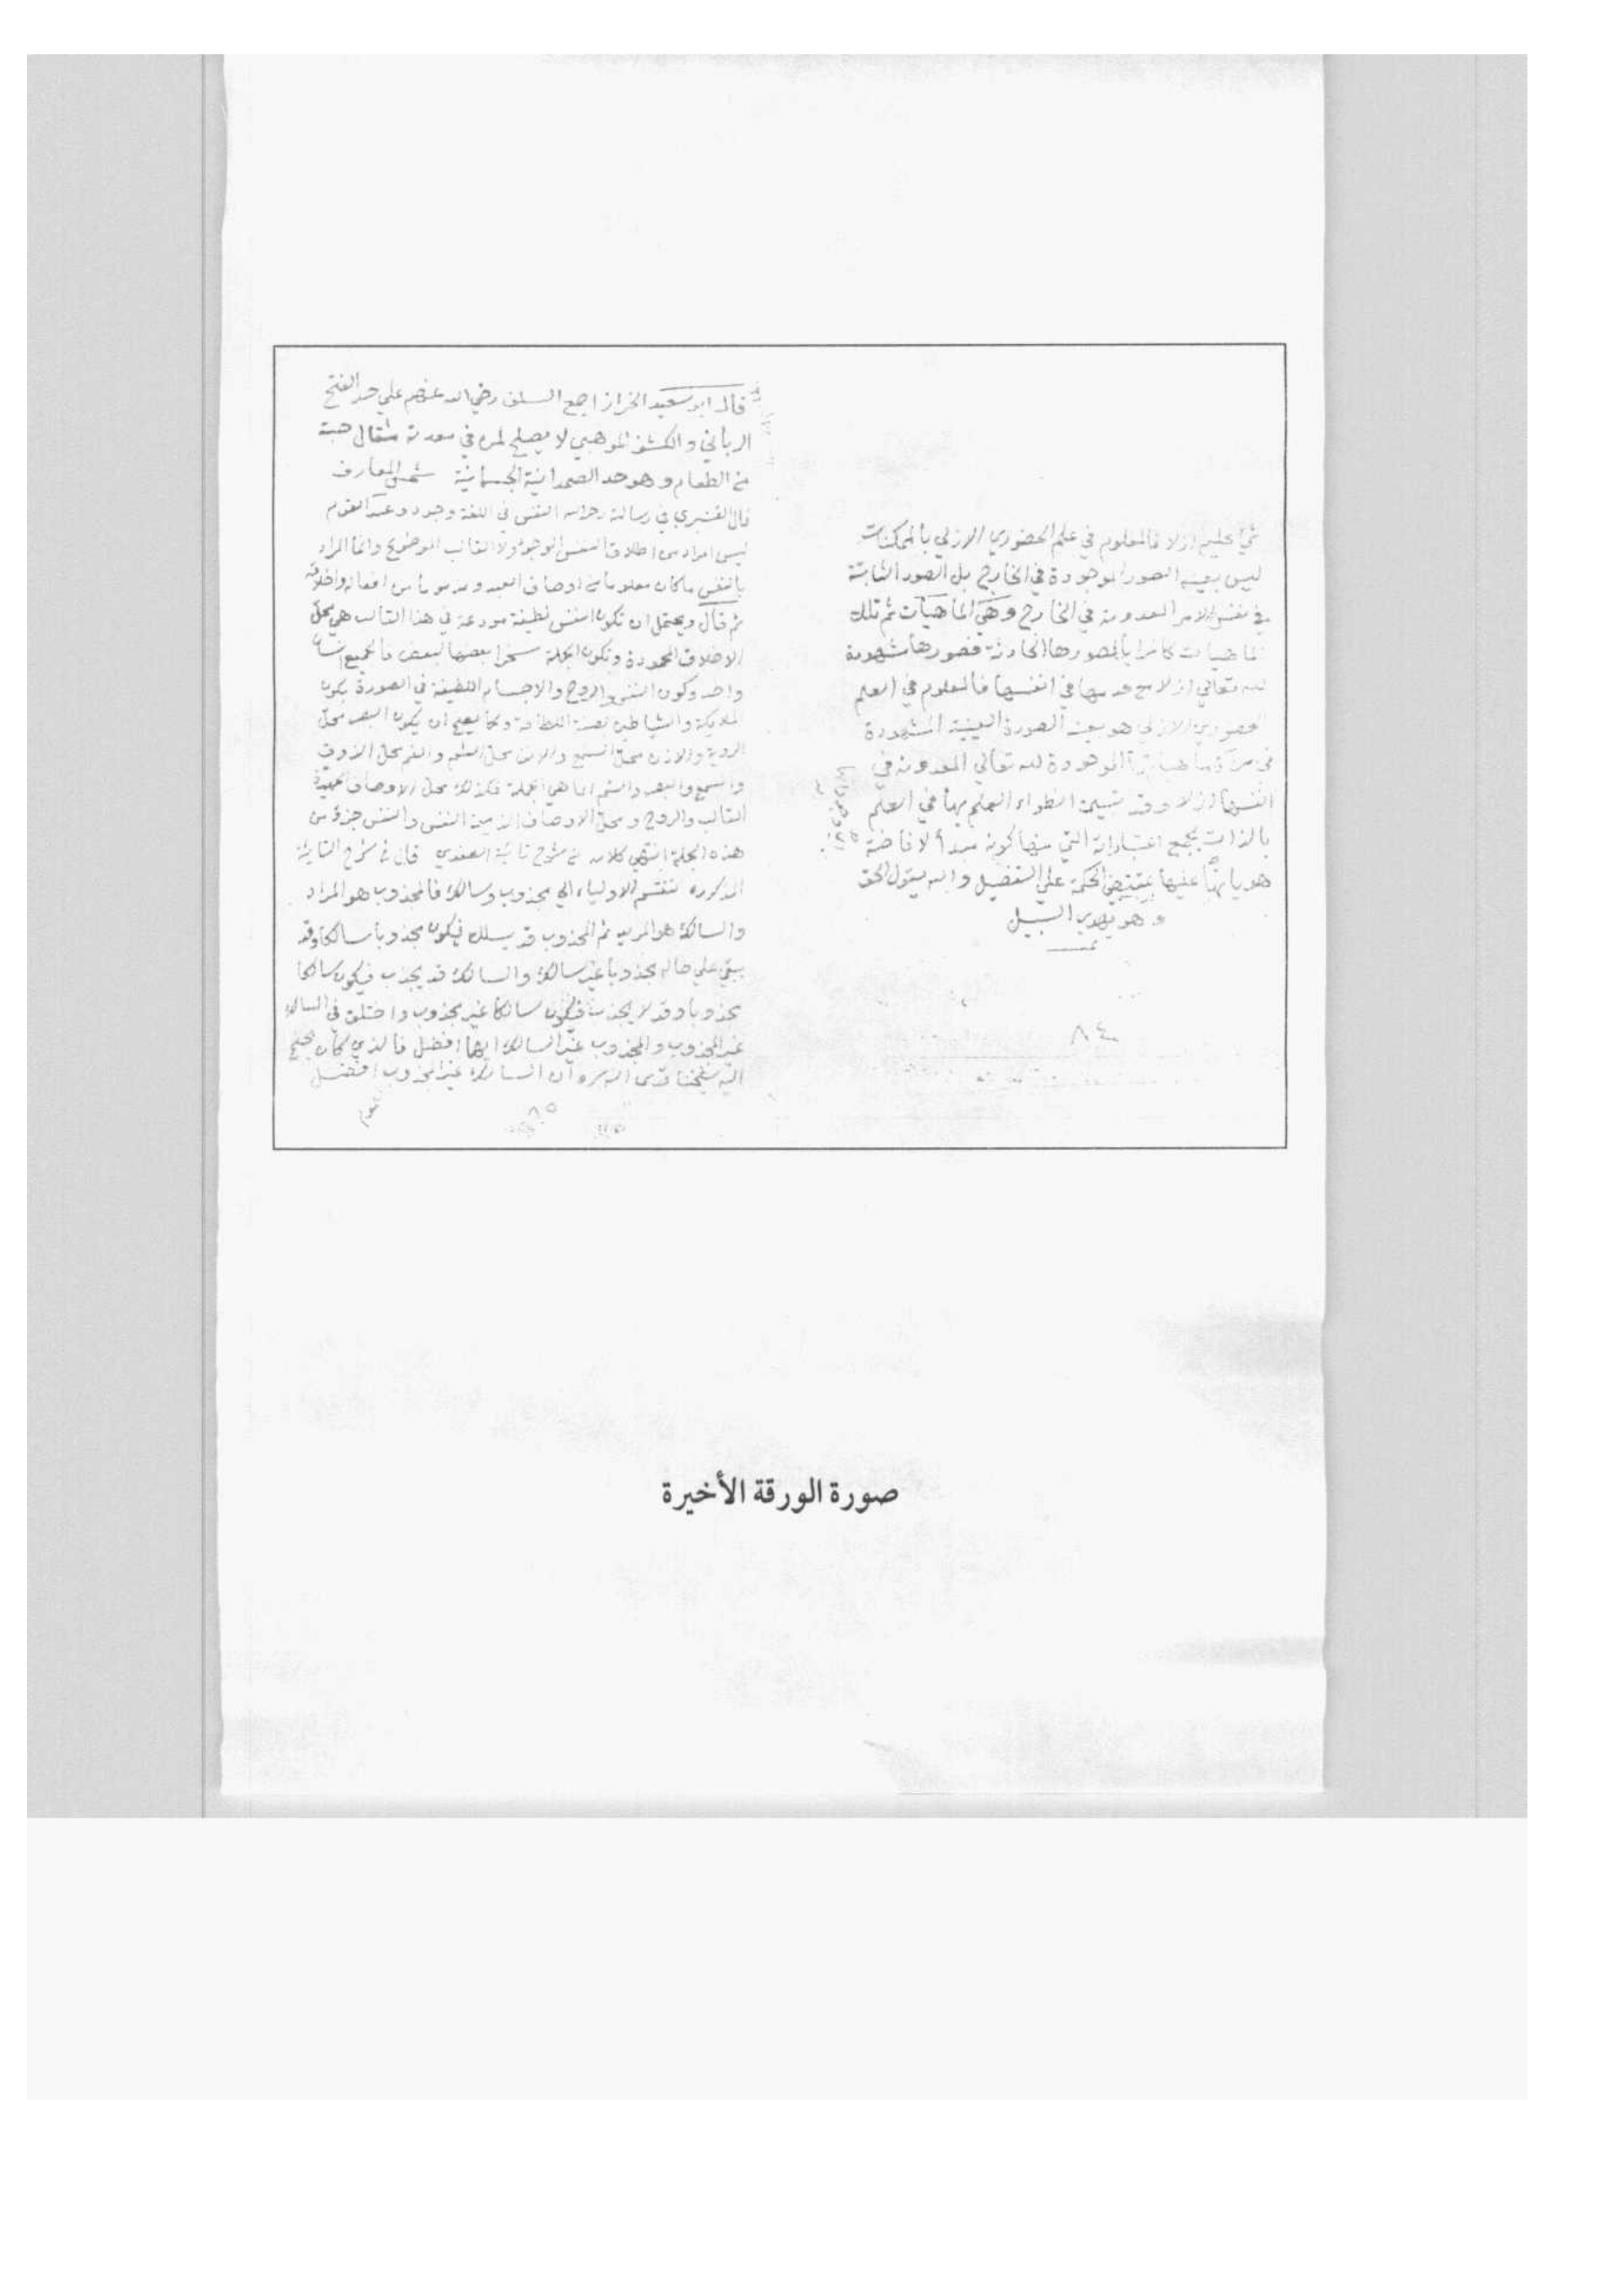 شيء عليم ازلا فالمعلوم في علم الحضوري الازلي بالممكنات
ليس بعينه الصور الموجودة في الخارج بل الصور الثابتة
في نفس الامر المعدومة في الخارج وهي الماهيات ثم تلك
الماهيات كالمرايا لصورها الحادثة فصورها مشهودة
لله تعالى ازلا مع عدمها في انفسها فالمعلوم في العلم
الحضوري الازلي هو بعينه الصورة العينية المشهودة
في مرآة ماهياتها الموجودة لله تعالى المعدومة في
انفسها ازلا وقد تبين انطواء العلم بها في العلم
بالذات بجميع اعتباراته التي منها كونه مبدأ لافاضة
هوياتها عليها بمقتضى الحكمة على التفصيل والله يقول الحق
وهو يهدي السبيل
تمت
٨٤
قال ابو سعيد الخراز اجمع السلف رضي الله عنهم على حد الفتح
الرباني والكشف الموهبي لا يصلح لمن في معدته مثقال حبة
من الطعام وهو حد الصمدانية الجسمانية شمس المعارف
قال القشيري في رسالته رحمه الله النفس في اللغة وجوده وعند القوم
ليس المراد من اطلاق النفس الوجود ولا القالب الموضوع وانما المراد
بالنفس ما كان معلوما من اوصاف العبد ومذموما من افعاله واخلاقه
ثم قال ويحتمل ان تكون النفس لطيفة مودعة في هذا القالب هي محل
الاخلاق المحمودة وتكون الجملة مسخرا بعضها لبعض فالجميع انسان
واحد وكون النفس والروح والاجسام اللطيفة في الصورة بكون
الملايكة والشياطين بصفة اللطافة وكما يصح ان يكون البصر محل
الروية والاذن محل السمع والانف محل الشم والفم محل الذوق
والسمع والبصر والشم انما هي الجملة فكذلك محل الاوصاف الحميدة
القالب والروح ومحل الاوصاف الذميمة النفس والنفس جزؤ من
هذه الجملة انتهى كلامه من شرح تائية الصفدي قال في شرح التائية
المذكورة تنقسم الاولياء الى مجذوب وسالك فالمجذوب هو المراد
والسالك هو المريد ثم المجذوب قد يسلك فيكون مجذوبا سالكا وقد
يبقى على حاله مجذوبا غير سالك والسالك قد يجذب فيكون سالكا
مجذوبا وقد لا يجذب فيكون سالكا غير مجذوب واختلف في السالك
غير المجذوب والمجذوب غير السالك ايهما افضل فالذي كان يجنح
اليه شيخنا قدس الله سره ان السالك غير المجذوب افضل
٨٥
صورة الورقة الأخيرة